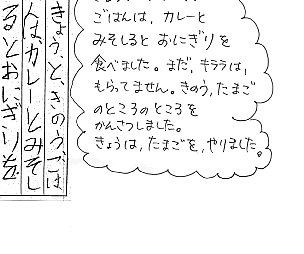 ごはんは，カレーと
みそしると おにぎりを
食べました。まだ，キララは，
もらってません。きのう，たまご
のところのところを
かんさつしました。
きょうは，たまごを，やりました。
きょう、と、きのう、ごは
んは、カレーとみそし
るとおにぎりを